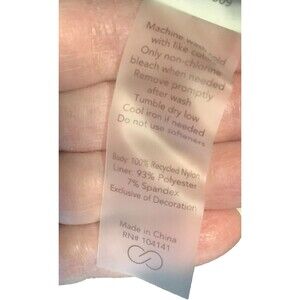 009
Machine wash cold
with like colors
Only non-chlorine
bleach when needed
Remove promptly
after wash
Tumble dry low
Cool iron if needed
Do not use softeners
Body: 100% Recycled Nylon
Liner: 93% Polyester
7% Spandex
Exclusive of Decoration
Made in China
RN# 104141